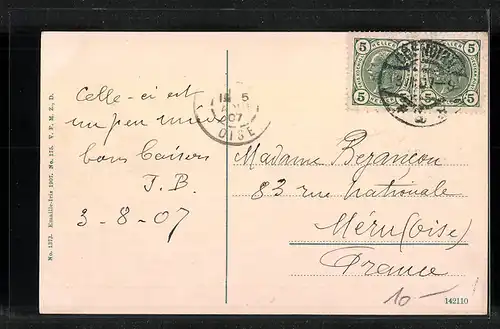 Celle-ci est
un peu mieux
bons baisers
J. B.
3-8-07
Madame Bejançon
83 rue Nationale
Méru (Oise)
France
10-
5 HELLER 5
5 HELLER 5
5
07
OISE
No. 1373. Emaille-Iris 1907. No. 155. V. P. M. Z., D.
142110